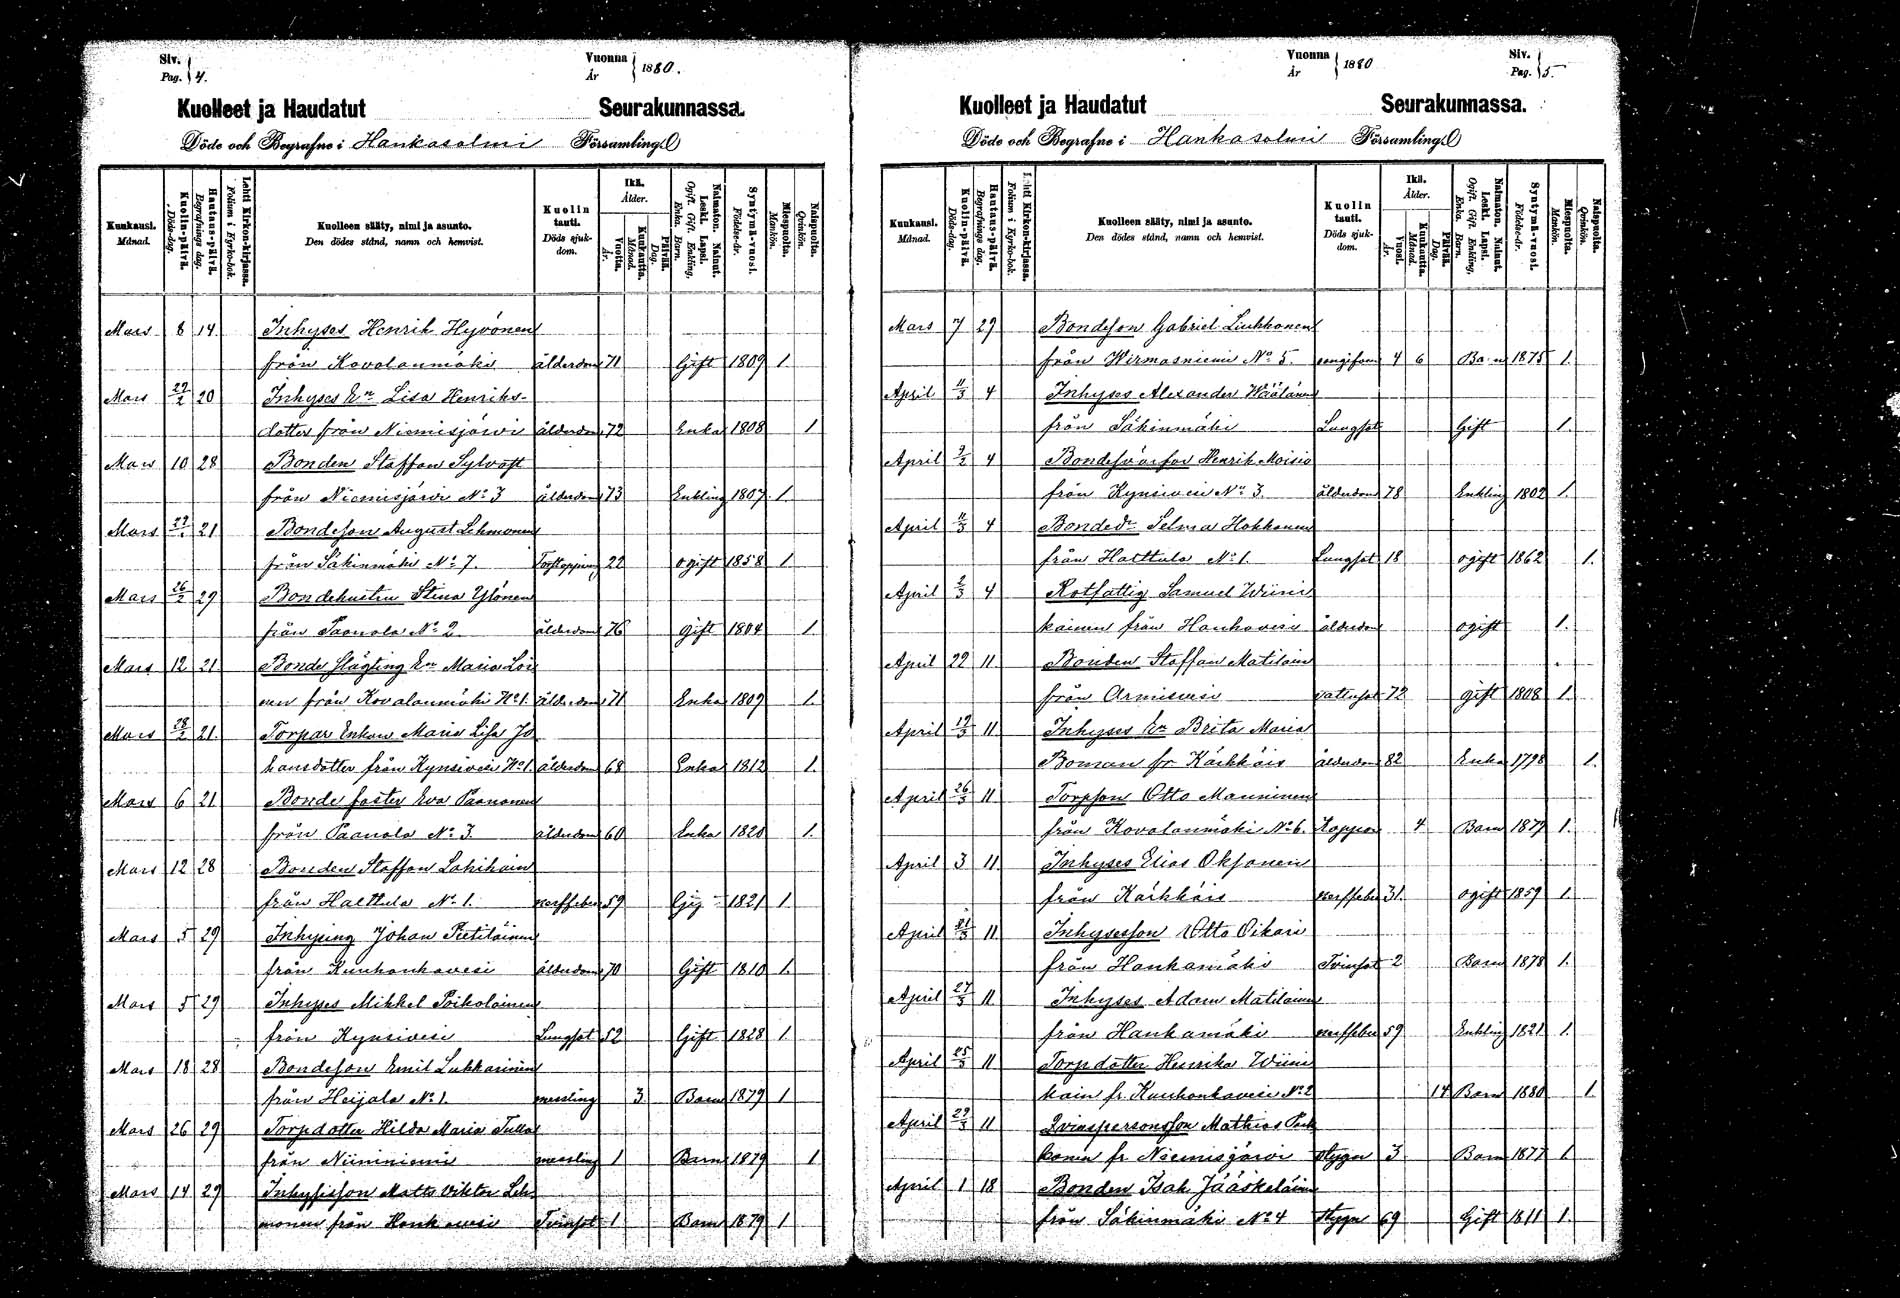 Siv. Pag. 4. Vuonna År 1880.
Kuolleet ja Haudatut Seurakunnassa.
Döde och Begrafne i Hankasalmi Församling
Kuukausi. Månad. Kuolin-päivä. Döds-dag. Hautaus-päivä. Begrafnings dag. Lehti Kirkon-kirjassa. Folium i Kyrko-bok. Kuolleen sääty, nimi ja asunto. Den dödes stånd, namn och hemvist. Kuolin tauti. Döds sjukdom. Ikä. Ålder. Vuotta. År. Kuukautta. Månad. Päivää. Dag. Naimaton. Nainut. Leski. Lapsi. Ogift. Gift. Enkling. Enka. Barn. Syntymä-vuosi. Födelse-år. Miespuolta. Mankön. Naispuolta. Qvinkön.
Mars 8 14 Inhyses Henrik Hyvönen
från Kovalanmäki ålderdom 71 Gift 1809 1.
Mars 29/2 20 Inhyses En Lisa Henriks-
dotter från Niemisjärvi ålderdom 72 Enka 1808 1
Mars 10 28 Bonden Staffan Sylvast
från Niemisjärvi No 3 ålderdom 73 Enkling 1807 1.
Mars 21 Bondeson August Lehmonen
från Säkinmäki No 7. 22 ogift 1858 1
Mars 26/2 29 Bondehustru Stina Ylönen
från Paanala No 2. ålderdom 76 gift 1804 1.
Mars 12 21 Bonde En Maria Loi
nen från Kovalanmäki No 1. ålderdom 71 Enka 1809 1.
Mars 28/2 21. Torpar Enkan Maria Lisa Jo
hansdotter från Kynsivesi No 1. ålderdom 68 Enka 1812 1.
Mars 6 21 Bonde faster Eva Paananen
från Paanala No 3. ålderdom 60 Enka 1820 1.
Mars 12 28 Bonden Staffan
från Halttula No 1. nerffeber 59 1821 1.
Mars 5 29 Inhysing Johan Pietiläinen
från Kuuhankavesi ålderdom 70 Gift 1810 1.
Mars 5 29 Inhyses Mikkel Poikolainen
från Kynsivesi Lungsot 52 Gift 1828 1.
Mars 18 28 Bondeson Emil Lukkarinen
från Heijala No 1. messling 3 Barn 1879 1
Mars 26 29 Torpdotter Hilda Maria Tulla
från Niininiemi messling 1 Barn 1879 1
Mars 14 29 Inhysesson Matts Viktor Leh
monen från Hankavesi Tvinsot 1 Barn 1879 1
Siv. Pag. 5. Vuonna År 1880
Kuolleet ja Haudatut Seurakunnassa.
Döde och Begrafne i Hankasalmi Församling
Kuukausi. Månad. Kuolin-päivä. Döds-dag. Hautaus-päivä. Begrafnings dag. Lehti Kirkon-kirjassa. Folium i Kyrko-bok. Kuolleen sääty, nimi ja asunto. Den dödes stånd, namn och hemvist. Kuolin tauti. Döds sjukdom. Ikä. Ålder. Vuosi. År. Kuukautta. Månad. Päivää. Dag. Naimaton. Nainut. Leski. Lapsi. Ogift. Gift. Enkling. Enka. Barn. Syntymä-vuosi. Födelse-år. Miespuolta. Mankön. Naispuolta. Qvinkön.
Mars 7 29 Bondeson Gabriel Liukkonen
från Wirmasniemi No 5. 4 6 Barn 1875 1.
April 11/3 4 Inhyses Alexander Wäätänen
från Säkinmäki Lungsot Gift 1.
April 9/2 4 Bondesvärfar Henrik Moisio
från Kynsivesi No 3. ålderdom 78 Enkling 1802 1.
April 11/3 4 Bonded:r Selma Hokkanen
från Halttula No 1. Lungsot 18 ogift 1862 1.
April 2/3 4 Rotfattig Samuel Wiini
kainen från Hankavesi ålderdom ogift 1.
April 22 11. Bonden Staffan Matilain
från Armisvesi vattusot 72 gift 1808 1.
April 19/3 11. Inhyses En Brita Maria
Boman fr Kärkkäis ålderdom 82 Enka 1798 1.
April 26/3 11 Torpson Otto Manninen
från Kovalanmäki No 6. Koppor 4 Barn 1879 1.
April 3 11 Inhyses Elias Oksanen
från Kärkkäis nerffeber 31. ogift 1859 1.
April 21/3 11 Inhysesson Otto Oikari
från Hankamäki Tvinsot 2 Barn 1878 1.
April 27/3 11 Inhyses Adam Matilainen
från Hankamäki nerffeber 59 Enkling 1821 1.
April 25/3 11 Torpdotter Henrika Wiini
kain fr. Kuuhankavesi No 2 14 Barn 1880 1
April 29/3 11 Qvinspersonsson Mathias Park
konen fr Niemisjärvi Stygn 3 Barn 1877 1
April 1 18 Bonden Isak Jääskeläinen
från Säkinmäki No 4 Stygn 69 Gift 1811 1.